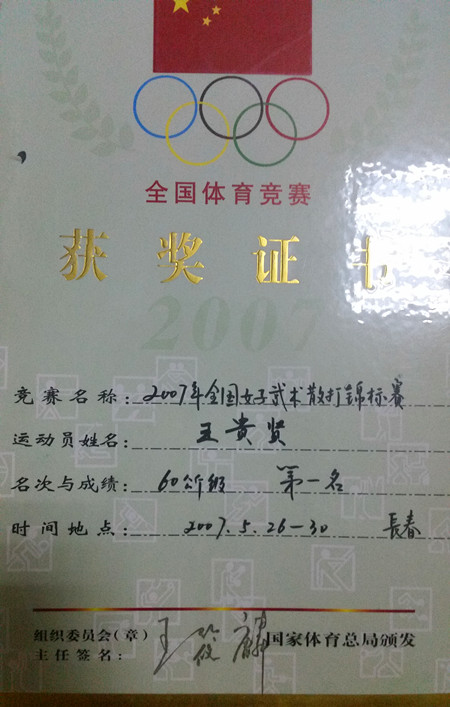 全国体育竞赛
获奖证书
2007
竞赛名称：2007年全国女子武术散打锦标赛
运动员姓名：王贵贤
名次与成绩：60公斤级 第一名
时间地点：2007.5.26-30 長春
组织委员会（章）
主任签名：王筱麟 国家体育总局颁发